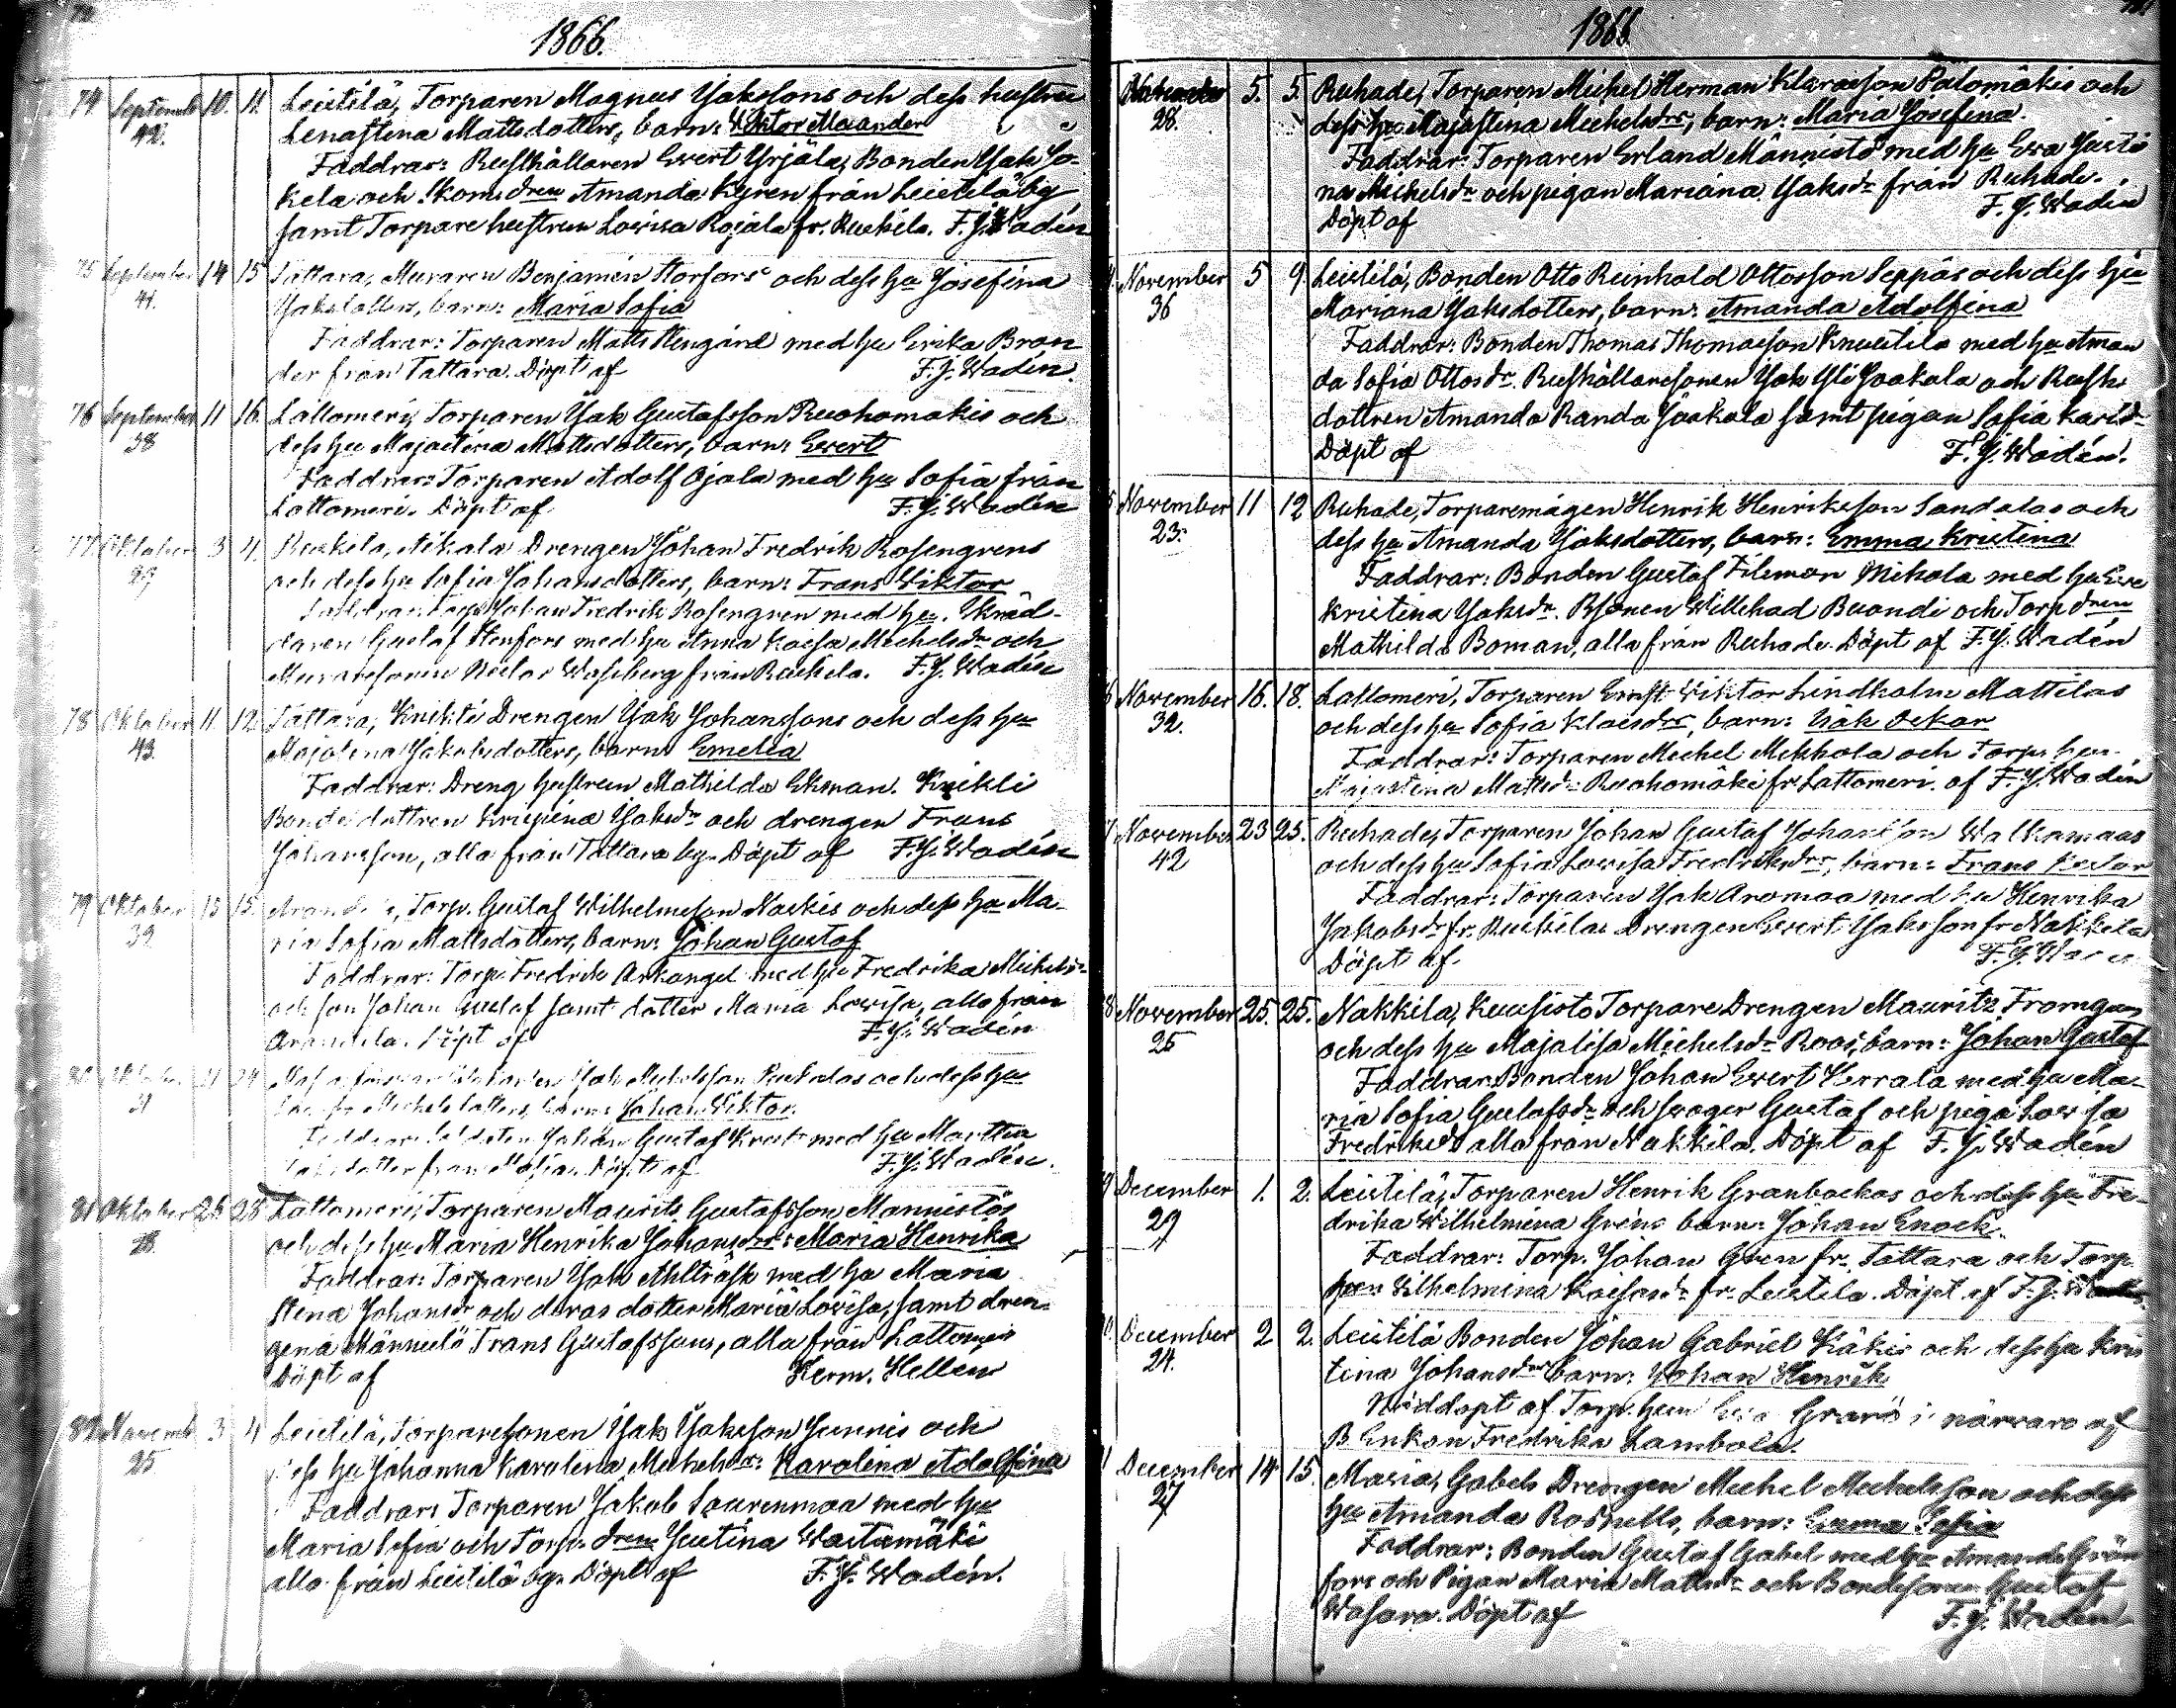 1866.
74 Septemb 10. 11. Leistilä, Torparen Magnus Jakssons och dess hustru
42. Lenastina Mattsdotters, barn: Viktor Maander
Faddrar: Rusthållaren Evert Yrjälä, Bonden Jak So-
kela och Skom. dren Amanda Kyren från Leistilä by
samt Torpare hustrun Lovisa Rojala fr. Ruskila. F. J. Wadén
75 September 14 15 Tattara, Muraren Benjamin Storfors och dess hu Josefina
41. Jaksdotters, barn: Maria Sofia
Faddrar: Torparen Matts Stengård med hu Erika Bran
der från Tattara. Döpt af F. J. Wadén.
76 September 11 16. Lattomeri, Torparen Jak Gustafsson Ruohomäkis och
38 dess hu Majastina Mattsdotters, barn: Evert
Faddrar: Torparen Adolf Ojala med hu Sofia från
Lattomeri. Döpt af F. J. Wadén
77 Oktober 3 4. Ruskila, Drengen Johan Fredrik Rosengrens
29 och dess hu Sofia Johansdotters, barn: Frans Viktor
Faddrar: Johan Fredrik Rosengren med hu. Skräd-
daren Gustaf Stenfors med hu Anna Kaisa Michelsdr och
Wassberg från Ruskila. F. J. Wadén
78 Oktober 11. 12. Tattara, Knikti Drengen Jak Johanssons och dess hu
43. Majalena Jakobsdotters, barn: Emelia
Faddrar: Dreng hustrun Mathilda Ekman. Knikti
Bondedottren Jaksdr och drengen Frans
Johansson, alla från Tattara by. Döpt af F. J. Wadén
79 Oktober 15 15. Torp. Gustaf Wilhelmsson och dess hu Ma-
39. ria Sofia Mattsdotters, barn: Johan Gustaf
Faddrar: Torp. Fredrik Arkangel med hu Fredrika Michelsdr
och son Johan Gustaf samt dotter Maria Lovisa, alla från
Döpt af F. J. Wadén
80 21 24 Jak Michelsson och dess hu
31 Michelsdotters, barn: Johan Viktor.
Faddrar: Soldaten Johan Gustaf med hu Martha
från Masia. Döpt af F. J. Wadén.
81 Oktober 26 28 Lattomeri, Torparen Maurits Gustafsson Männistös
28. och dess hu Maria Henrika Johansdrs: Maria Henrika
Faddrar: Torparen Jak Ahlträsk med hu Maria
Stena Johansdr och deras dotter Maria Lovisa, samt dren-
gena Männistö Frans Gustafsson, alla från Lattomeri
Döpt af Herm. Hellén
82 Novemb 3 4 Leistilä, Torparesonen Jak Jaksson Junnis och
25 dess hu Johanna Karolina Michelsdrs: Karolina Adolfina
Faddrar: Torparen Jakob Saarenmaa med hu
Maria Sofia och Torp. dren Justina Wastamäki
alla från Leistilä by. Döpt af F. J. Wadén.
1866.
5. 5. Ruhade, Torparen Michel Herman Klaraesson Palomäkis och
28. dess hu Majastina Michelsdrs, barn: Maria Josefina.
Faddrar: Torparen Erland Männistö med hu Eva Justi
na Michelsdr och pigan Mariana Jaksdr från Ruhade.
Döpt af F. J. Wadén
November 5 9. Leistilä, Bonden Otto Reinhold Ottosson Seppäs och dess hu
36 Mariana Jaksdotters, barn: Amanda Adolfina
Faddrar: Bonden Thomas Thomasson Knuutila med hu Aman
da Sofia Ottosdr. Rusthållaresonen Jak Yli Jaakala och Rusth.
dottren Amanda Randa Jaakala samt pigan Sofia Karlsdr
Döpt af F. J. Wadén.
November 11 12 Ruhade, Torparemågen Henrik Henriksson Sandelas och
23. dess hu Amanda Jaksdotters, barn: Emma Kristina
Faddrar: Bonden Gustaf Filemon Mikola med hu Eva
Kristina Jaksdr. Rsonen Willehad Buandi och Torp dren
Mathilda Boman, alla från Ruhade. Döpt af F. J. Wadén
November 16. 18. Lattomeri, Torparen Ernst Viktor Lindholm Mattilas
32. och dess hu Sofia Klaesdrs, barn: Isak Oskar
Faddrar: Torparen Michel Mikkola och Torp. hu
Majastina Mattsdr Ruohomäki fr. Lattomeri. af F. J. Wadén
November 23 25. Ruhade, Torparen Johan Gustaf Johansson Walkamaas
42 och dess hu Sofia Lovisa Fredriksdrs, barn: Frans
Faddrar: Torparen Jak Aromaa med hu Henrika
Jakobsdr fr. Ruskila. Drengen Evert Jaksson fr Nakkila
Döpt af. F. J. Wadén
November 25. 25. Nakkila, Kuusisto Torpare Drengen Mauritz Framgen
26 och dess hu Majalisa Michelsdr Roos, barn: Johan Gustaf
Faddrar: Bonden Johan Evert Kerrala med hu Ma-
ria Sofia Gustafsdr och svåger Gustaf och piga Lovisa
Fredriksdr alla från Nakkila. Döpt af F. J. Wadén
December 1. 2. Leistilä, Torparen Henrik Granbackas och dess hu Fre-
29 drika Wilhelmina Gröns barn: Johan Enock.
Faddrar: Torp. Johan Grön fr. Tattara och Torp.
hun Wilhelmina Kaisasdr fr. Leistilä. Döpt af F. J. Wadén
December 2 2. Leistilä Bonden Johan Gabriel Käkis och dess hu Kris
24. tina Johansdrs barn: Johan Henrik
Nöddöpt af Torp. hun Eva Granö i närvaro af
B. Enkan Fredrika Lambola.
December 14 15. Masia, Gabels Drengen Michel Michelsson och dess
27 hu Amanda Rosnells, barn: Emma Sofia
Faddrar: Bonden Gustaf Gabel med hu Amanda Grön
fors och Pigan Maria Mattsdr och Bondesonen Gustaf
Wasara. Döpt af F. J. Wadén